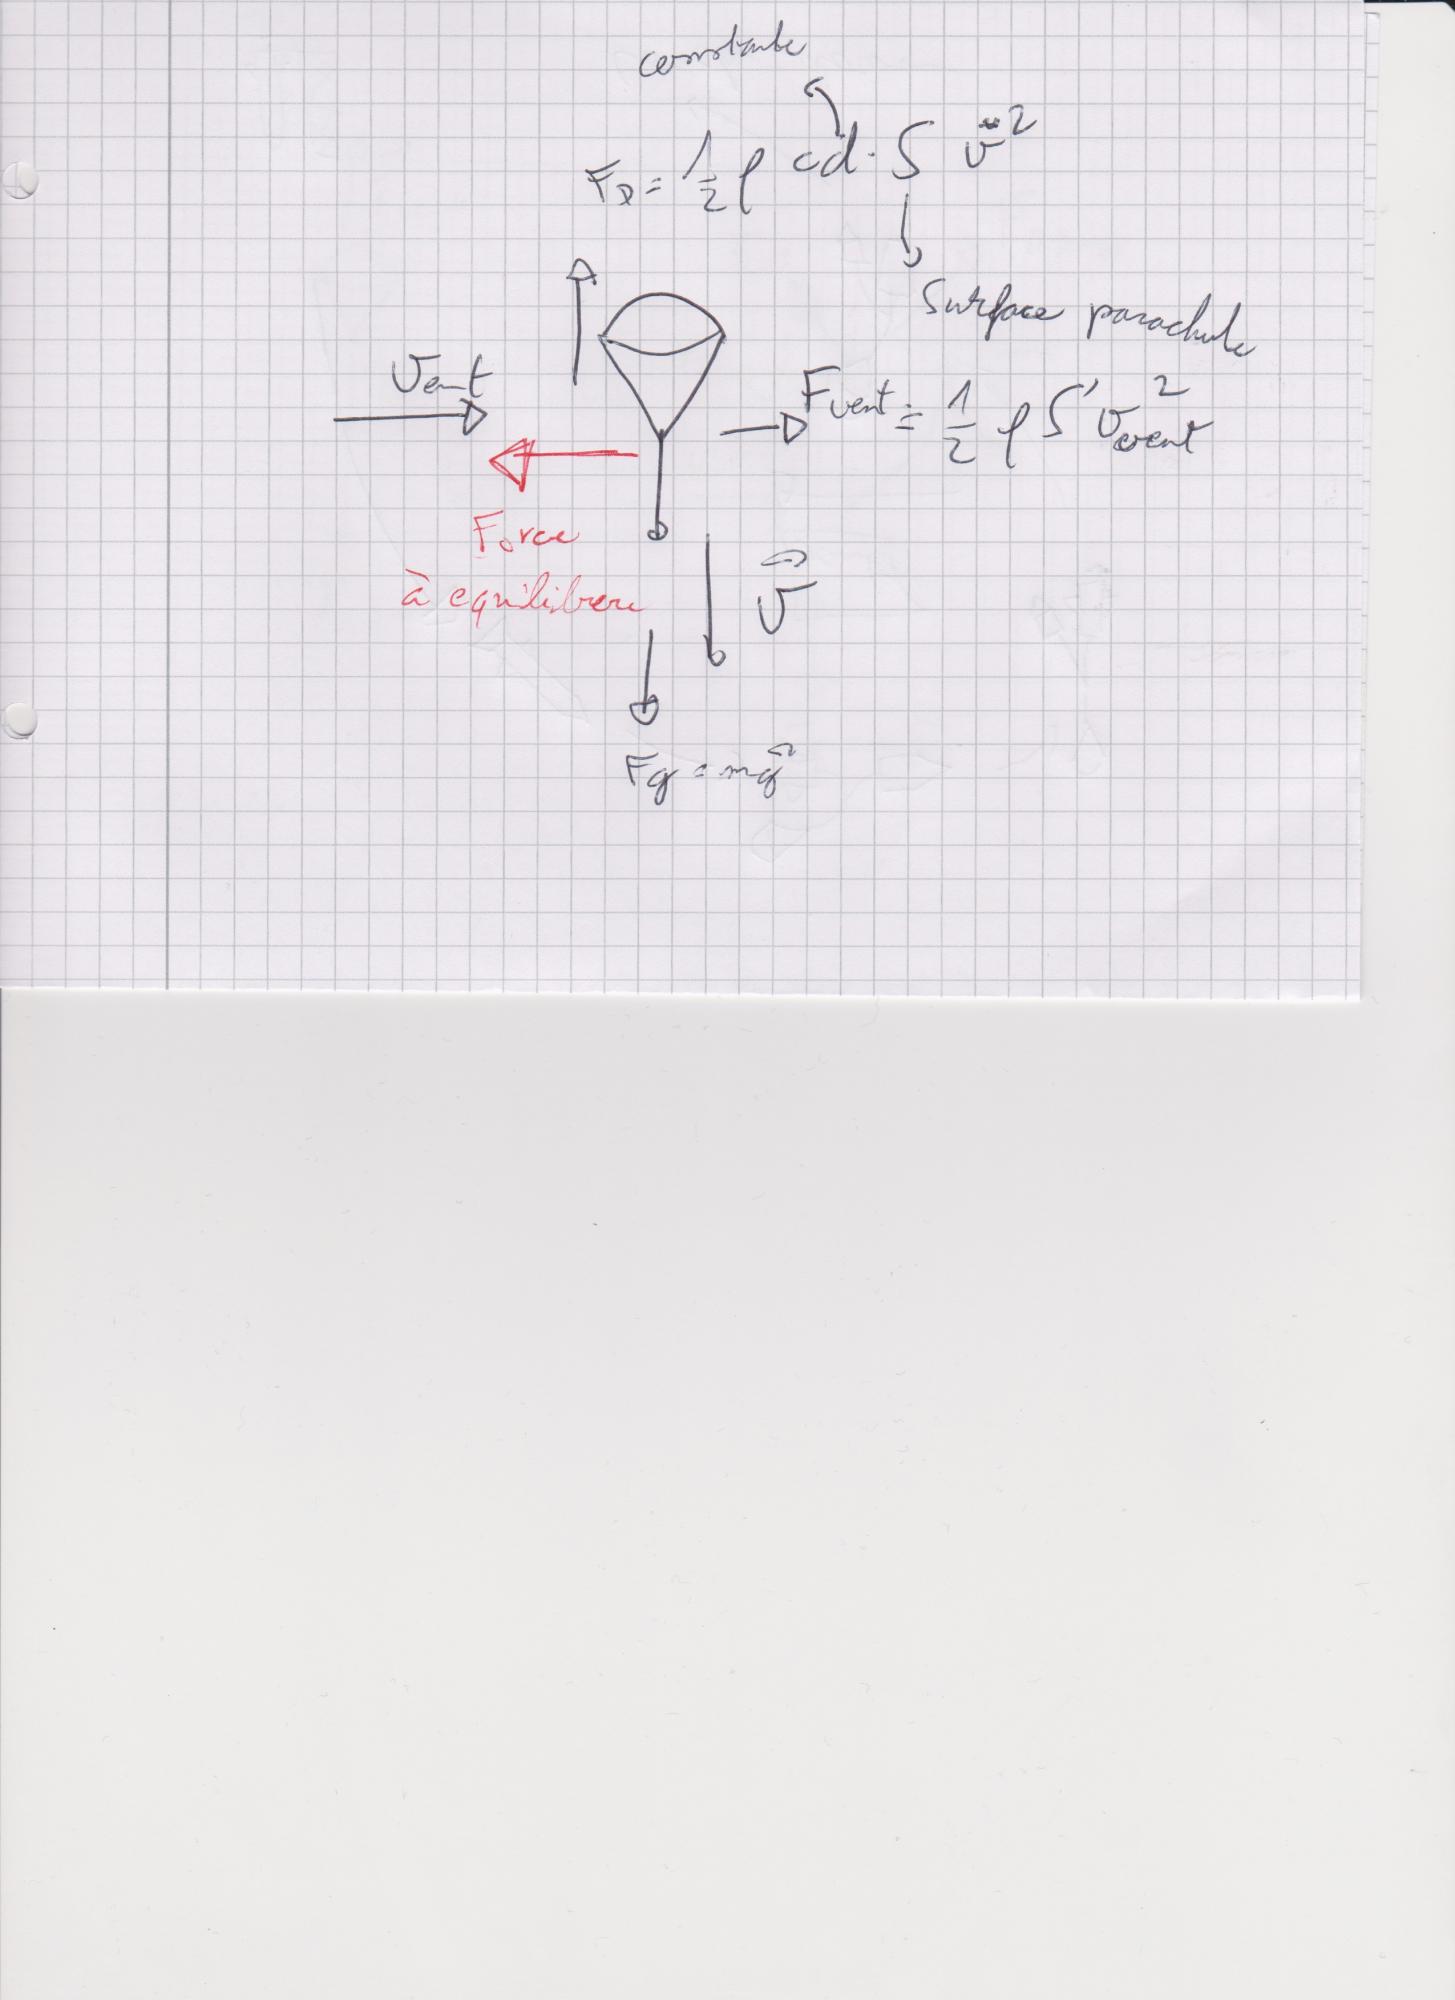 constante
F_D = 1/2 ρ cd. S v⃗²
Surface parachute
Vent
F vent = 1/2 ρ S' v²vent
Force
à equilibrer
v⃗
Fg = mg⃗